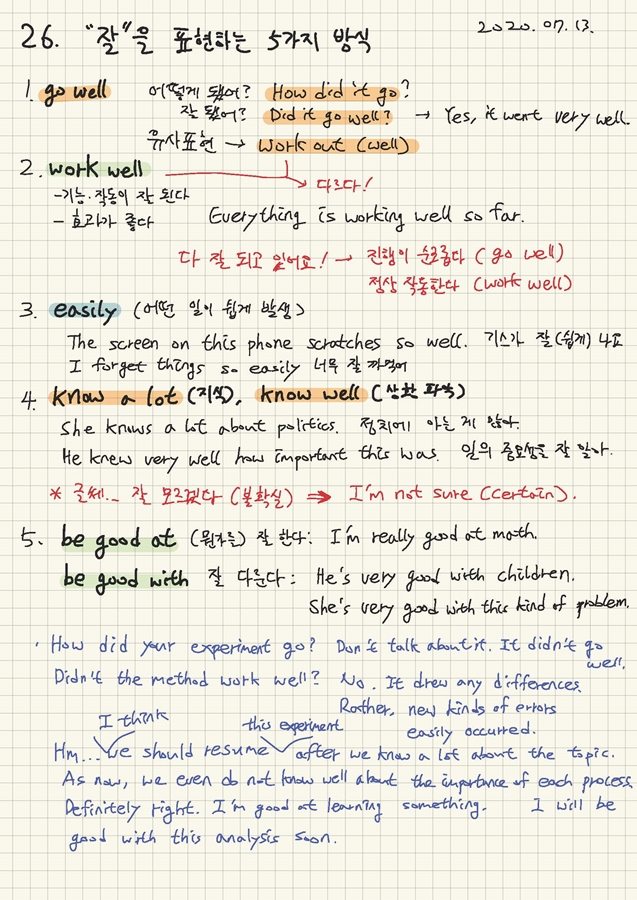 26. "잘"을 표현하는 5가지 방식
2020.07.13.
1. go well 어떻게 됐어? How did it go?
잘 됐어? Did it go well? → Yes, it went very well.
유사표현 → work out (well)
2. work well
다르다!
-기능·작동이 잘 된다
- 효과가 좋다 Everything is working well so far.
다 잘 되고 있어요! → 진행이 순조롭다 (go well)
정상 작동한다 (work well)
3. easily (어떤 일이 쉽게 발생)
The screen on this phone scratches so well. 기스가 잘(쉽게) 나고
I forget things so easily 너무 잘 까먹어
4. know a lot (지식), know well (상황 파악)
She knows a lot about politics. 정치에 아는 게 많아.
He knew very well how important this was. 일의 중요성을 잘 알아.
* 글쎄... 잘 모르겠다 (불확실) ⇒ I'm not sure (certain).
5. be good at (뭔가를) 잘 한다: I'm really good at math.
be good with 잘 다룬다: He's very good with children.
She's very good with this kind of problem.
· How did your experiment go? Don't talk about it. It didn't go
well.
Didn't the method work well? No. It drew any differences.
Rather, new kinds of errors
I think this experiment easily occurred.
Hm... we should resume after we know a lot about the topic.
As now, we even do not know well about the importance of each process.
Definitely right. I'm good at learning something. I will be
good with this analysis soon.